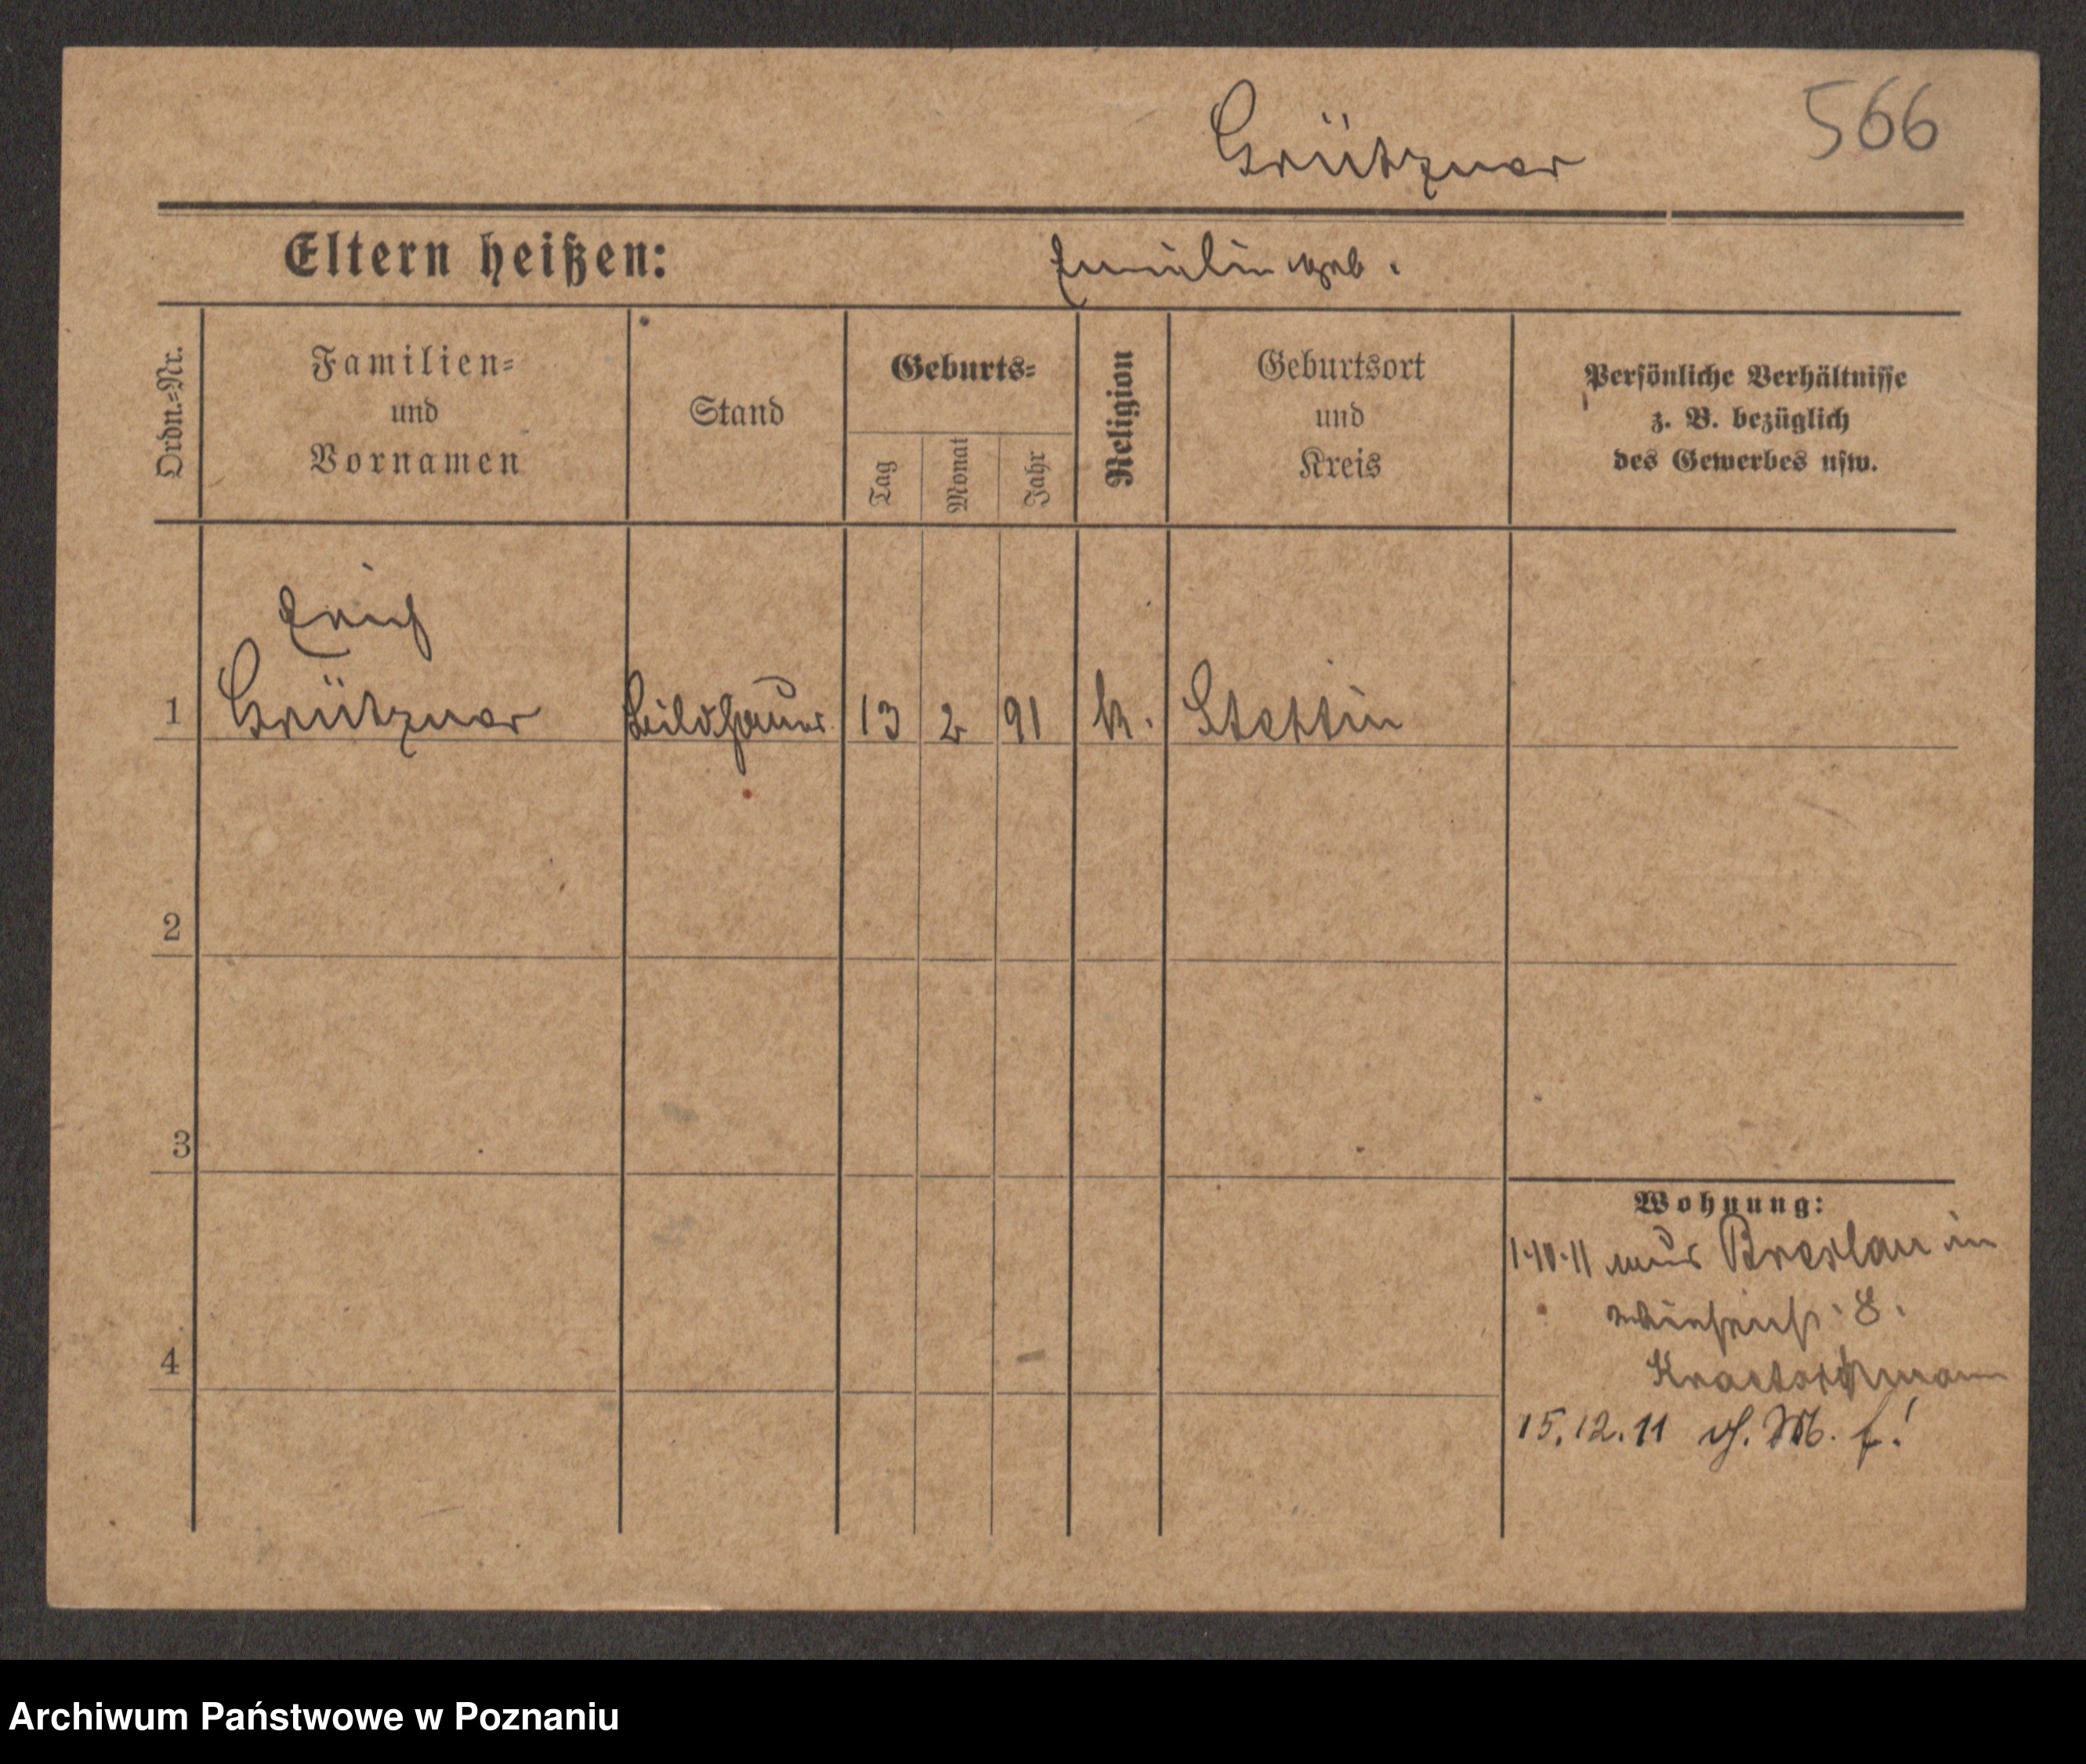 566
Grützner
Eltern heißen:
geb.
Ordn.-Nr.
Familien-
und
Vornamen
Stand
Geburts-
Tag
Monat
Jahr
Religion
Geburtsort
und
Kreis
Persönliche Verhältnisse
z. B. bezüglich
des Gewerbes usw.
Erich
1 Grützner Bildhauer 13 2 91 k. Stettin
2
3
4
Wohnung:
1.10.11 aus Breslau in
8.
15.12.11 M. f!
Archiwum Państwowe w Poznaniu